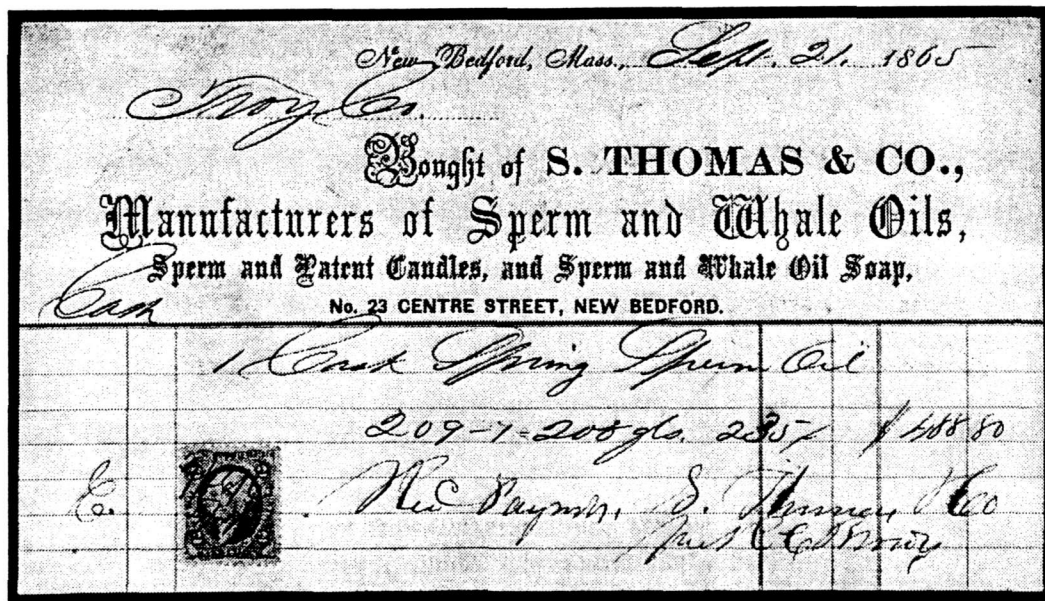 New Bedford, Mass., Sept. 21. 1865
Troy Co.
Bought of S. THOMAS & CO.,
Manufacturers of Sperm and Whale Oils,
Sperm and Patent Candles, and Sperm and Whale Oil Soap,
Cash
No. 23 CENTRE STREET, NEW BEDFORD.
1 Cask Spring Sperm Oil
209-1=208 gls. 235/ $488 80
E. Rec Paymt, S. Thomas & Co